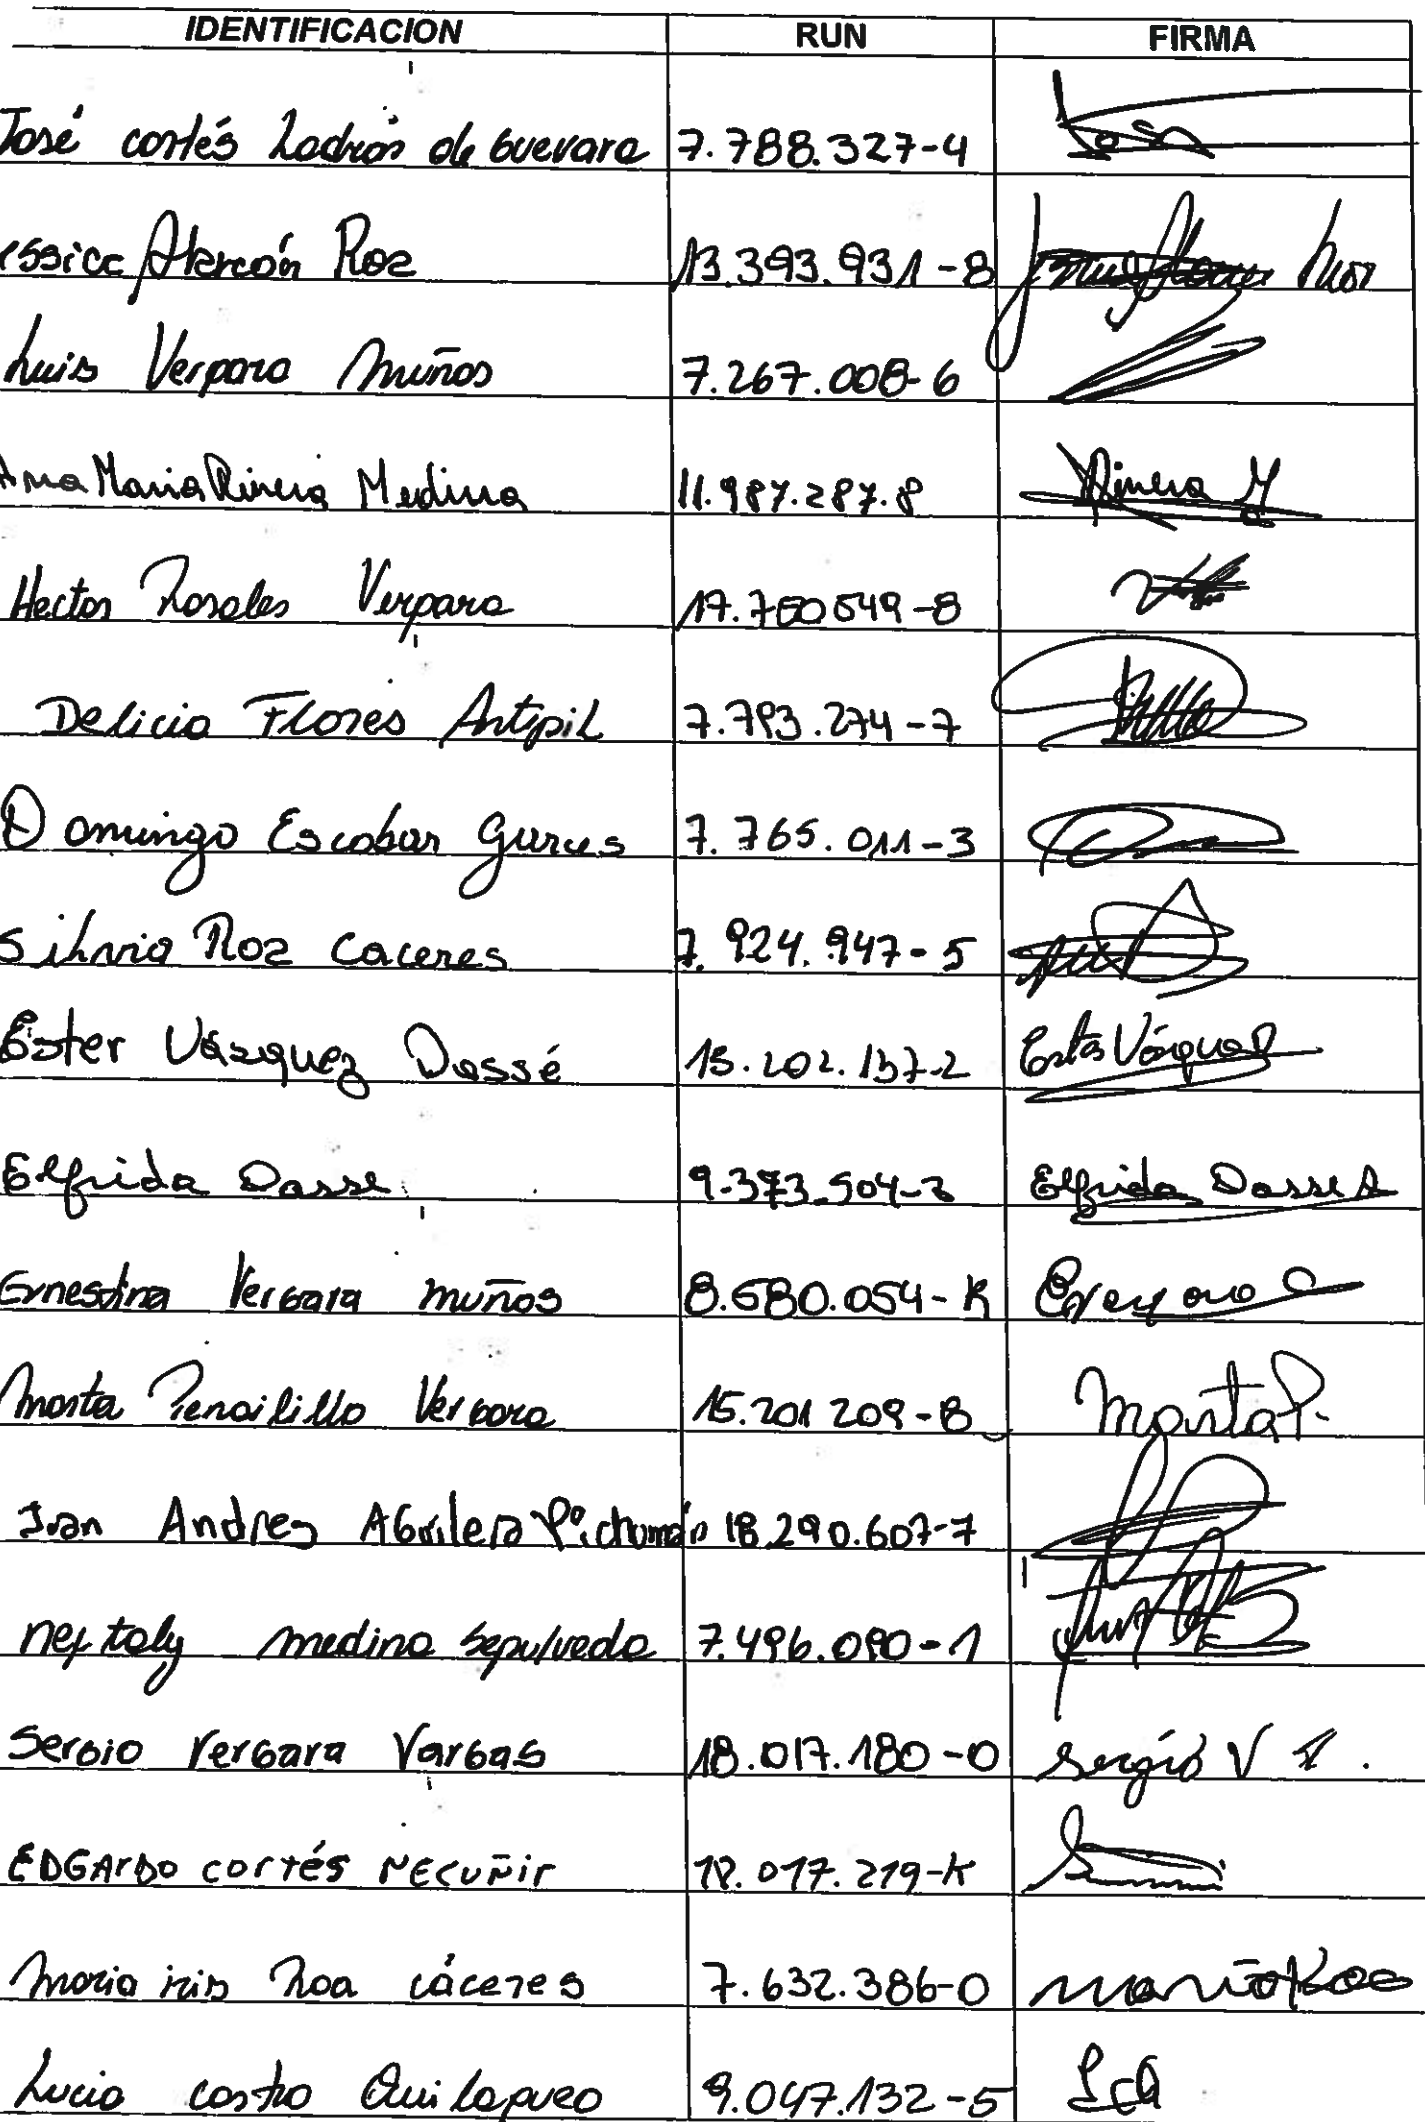 IDENTIFICACION RUN FIRMA
José cortés Ladrón de Guevara 7.788.327-4
essica Alarcón Roa 13.393.931-8
Luis Vergara Muños 7.267.008-6
Ana Maria Rivera Medina 11.987.287.8 Rivera M
Hector Rosales Vergara 17.760549-8
Delicia Flores Antipil 7.793.274-7
Domingo Escobar Garces 7.765.011-3
Silvia Roa Caceres 7.924.947-5
Ester Vásquez Dassé 15.202.137-2 Ester Vásquez D
Elfrida Dasse 9.373.504-3 Elfrida Dasse A
Ernestina Vergara muños 8.680.054-K
Marta Penailillo Vergara 15.201209-8 Marta P.
Ivan Andres Aguilera Pichumán 18.290.607-7
neftaly medina sepulveda 7.496.090-1
Sergio Vergara Vargas 18.017.180-0 Sergio V
EDGArDO cortés ÑECUÑir 18.017.219-K
Maria iris Roa cáceres 7.632.386-0 Maria Roa
Lucia castro Quilapueo 9.047.132-5 LcQ